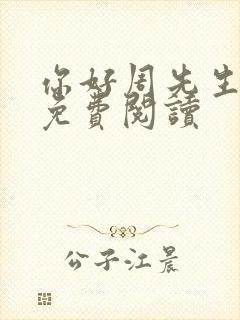 你好周先生
免費閱讀
公子江晨